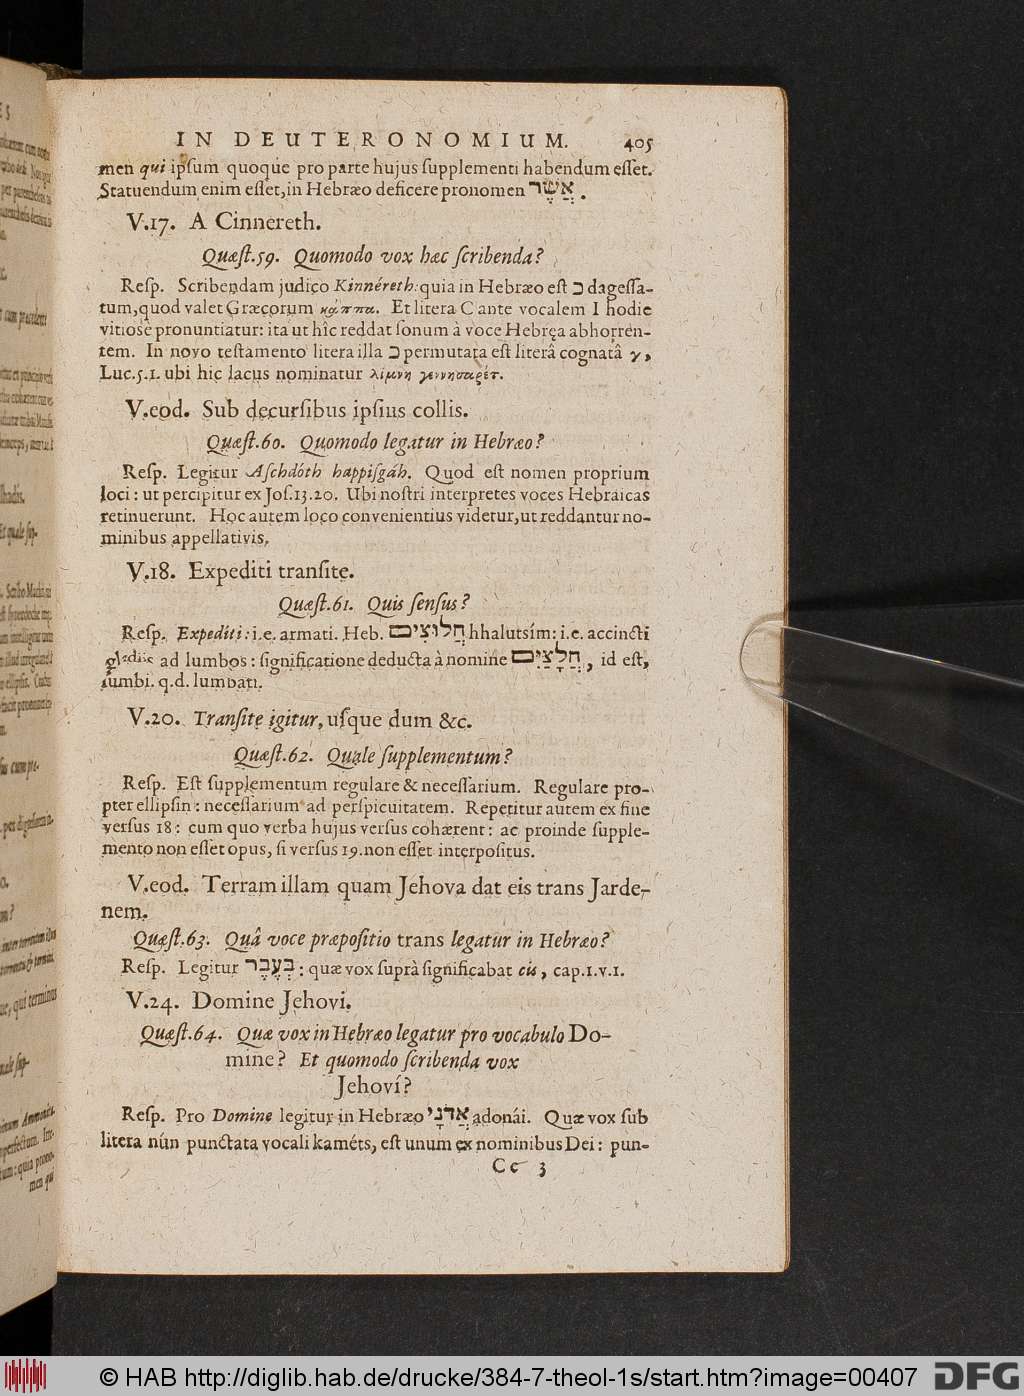 IN DEUTERONOMIUM. 405
men qui ipſum quoque pro parte hujus ſupplementi habendum eſſet.
Statuendum enim eſſet, in Hebræo deficere pronomen אֲשֶׁר.
V.17. A Cinnereth.
Quæſt.59. Quomodo vox hæc ſcribenda?
Reſp. Scribendam judico Kinnéreth: quia in Hebræo eſt כ dageſſa-
tum, quod valet Græcorum κάππα. Et litera C ante vocalem I hodie
vitiosè pronuntiatur: ita ut hîc reddat ſonum à voce Hebrẹa abhorren-
tem. In novo teſtamento litera illa כ permutata eſt literâ cognatâ γ,
Luc.5.1. ubi hic lacus nominatur λίμνη γεννησαρέτ.
V.eod. Sub decurſibus ipſius collis.
Quæſt.60. Quomodo legatur in Hebræo?
Reſp. Legitur Aſchdóth happiſgáh. Quod eſt nomen proprium
loci: ut percipitur ex Joſ.13.20. Ubi noſtri interpretes voces Hebraicas
retinuerunt. Hoc autem loco convenientius videtur, ut reddantur no-
minibus appellativis.
V.18. Expediti tranſite.
Quæſt.61. Quis ſenſus?
Reſp. Expediti: i.e. armati. Heb. חֲלוּצִים hhalutsím: i.e. accincti
gladiis ad lumbos: ſignificatione deducta à nomine חֲלָצַיִם, id eſt,
lumbi. q.d. lumbati.
V.20. Tranſite igitur, uſque dum &c.
Quæſt.62. Quale ſupplementum?
Reſp. Eſt ſupplementum regulare & neceſſarium. Regulare pro-
pter ellipſin: neceſſarium ad perſpicuitatem. Repetitur autem ex fine
verſus 18: cum quo verba hujus verſus cohærent: ac proinde ſupple-
mento non eſſet opus, ſi verſus 19. non eſſet interpoſitus.
V.eod. Terram illam quam Jehova dat eis trans Jarde-
nem.
Quæſt.63. Quâ voce præpoſitio trans legatur in Hebræo?
Reſp. Legitur בְּעֵבֶר: quæ vox ſuprà ſignificabat cis, cap.1.v.1.
V.24. Domine Jehovi.
Quæſt.64. Quæ vox in Hebræo legatur pro vocabulo Do-
mine? Et quomodo ſcribenda vox
Jehoví?
Reſp. Pro Domine legitur in Hebræo אֲדֹנָי adonái. Quæ vox ſub
litera nún punctata vocali kaméts, eſt unum ex nominibus Dei: pun-
Cc 3
© HAB http://diglib.hab.de/drucke/384-7-theol-1s/start.htm?image=00407 DFG